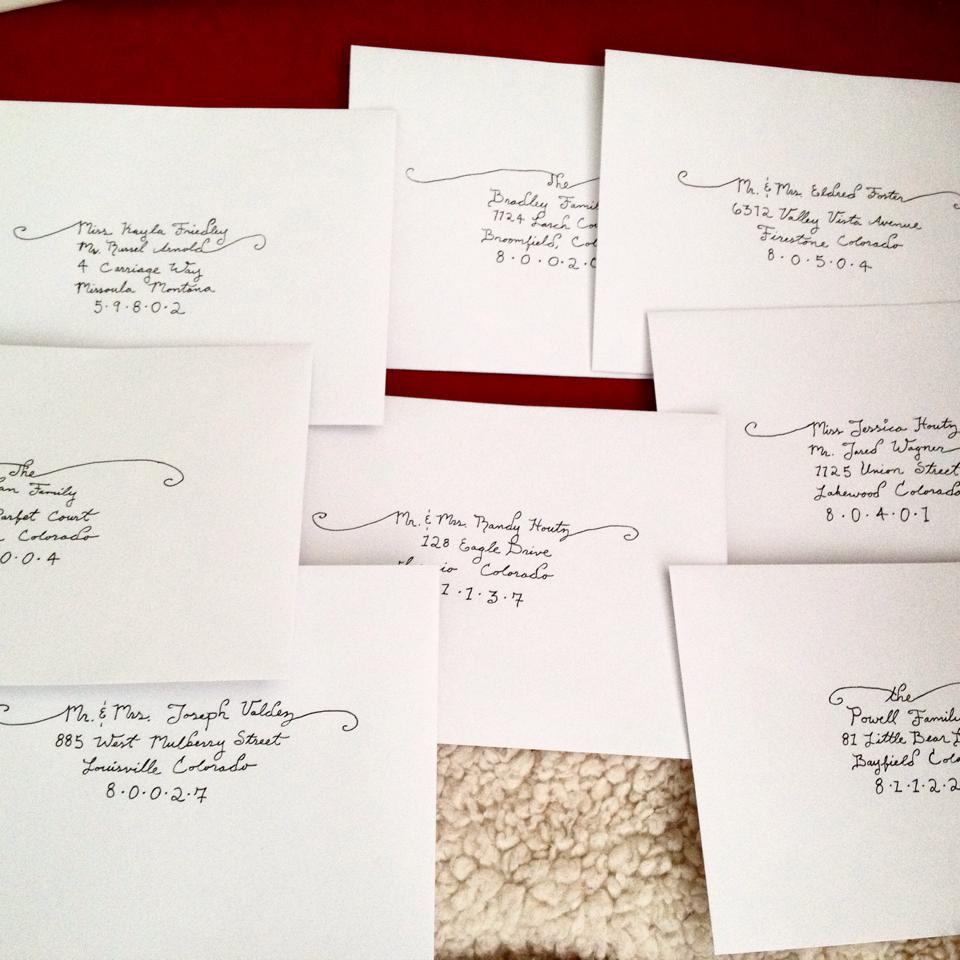 Miss Kayla Friedley
Mr. Russel Arnold
4 Carriage Way
Missoula Montana
5·9·8·0·2
The
Bradley Famil
1124 Larch Co
Broomfield, Col
8·0·0·2·0
Mr. & Mrs. Eldred Foster
6312 Valley Vista Avenue
Firestone Colorado
8·0·5·0·4
The
an Family
arfet Court
Colorado
0·0·4
Mr. & Mrs. Randy Houtz
128 Eagle Drive
io Colorado
1·1·3·7
Miss Jessica Houtz
Mr. Jared Wagner
1125 Union Street
Lakewood Colorado
8·0·4·0·1
Mr. & Mrs. Joseph Valdez
885 West Mulberry Street
Louisville Colorado
8·0·0·2·7
the
Powell Family
81 Little Bear
Bayfield Colo
8·1·1·2·2